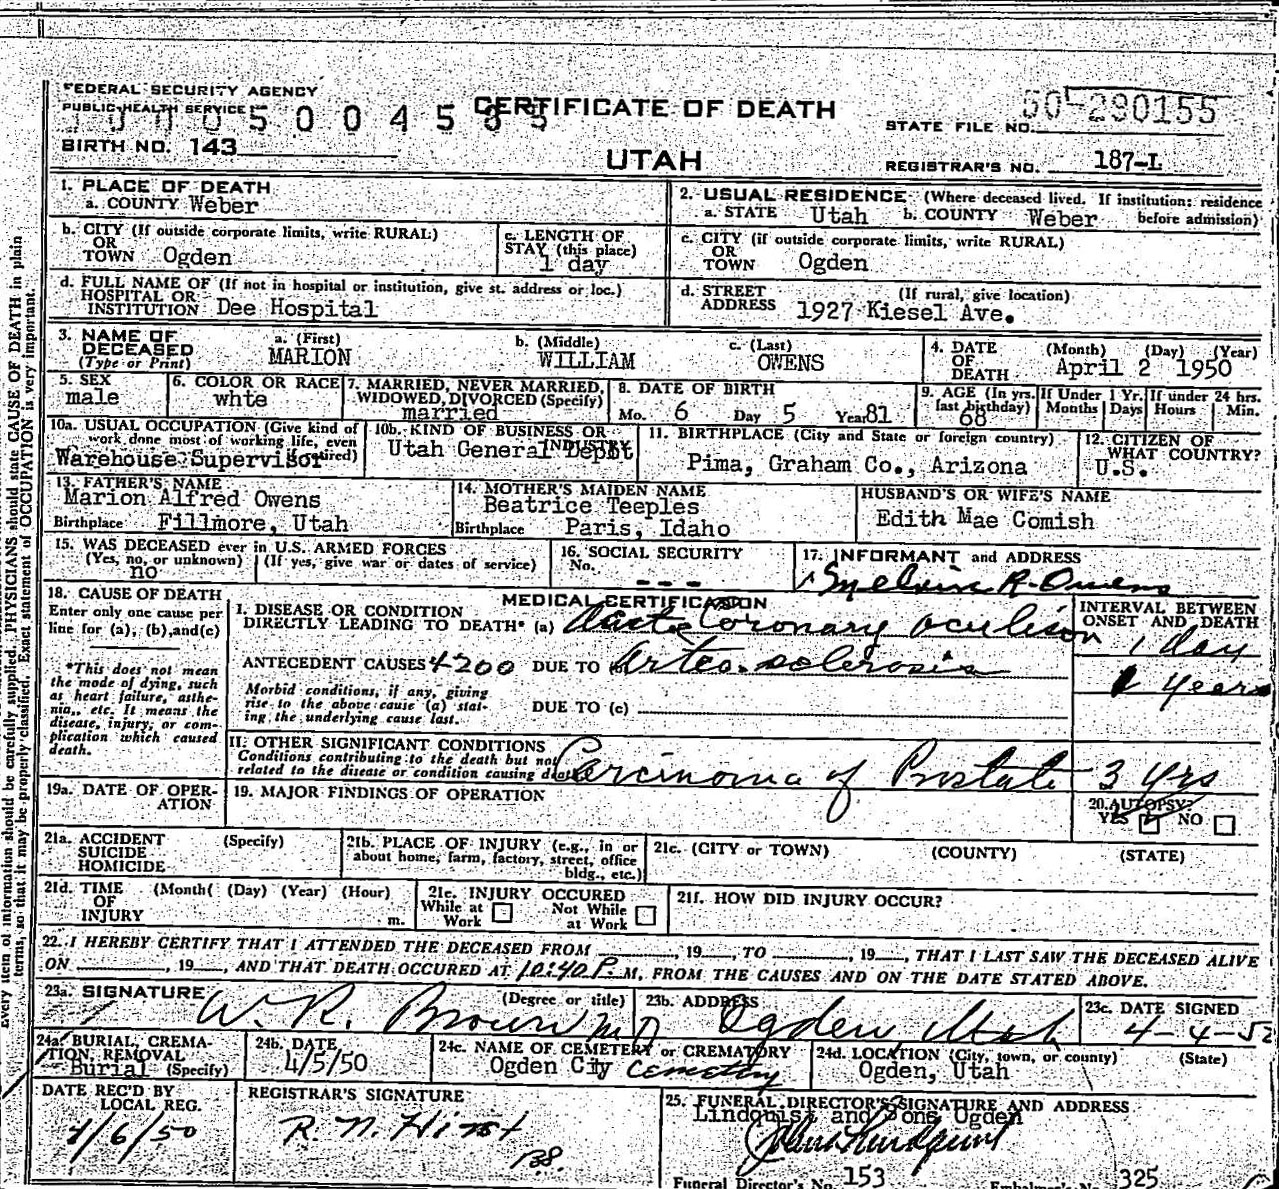 FEDERAL SECURITY AGENCY
PUBLIC HEALTH SERVICE
CERTIFICATE OF DEATH
UTAH
STATE FILE NO. 50-290155
BIRTH NO. 143
REGISTRAR'S NO. 187-L
1. PLACE OF DEATH
a. COUNTY Weber
2. USUAL RESIDENCE (Where deceased lived. If institution: residence before admission)
a. STATE Utah b. COUNTY Weber
b. CITY (If outside corporate limits, write RURAL)
OR
TOWN Ogden
c. LENGTH OF
STAY (this place)
1 day
c. CITY (if outside corporate limits, write RURAL)
OR
TOWN Ogden
d. FULL NAME OF (If not in hospital or institution, give st. address or loc.)
HOSPITAL OR
INSTITUTION Dee Hospital
d. STREET (If rural, give location)
ADDRESS 1927 Kiesel Ave.
3. NAME OF
DECEASED
(Type or Print)
a. (First)
MARION
b. (Middle)
WILLIAM
c. (Last)
OWENS
4. DATE (Month) (Day) (Year)
OF
DEATH April 2 1950
5. SEX
male
6. COLOR OR RACE
whte
7. MARRIED, NEVER MARRIED,
WIDOWED, DIVORCED (Specify)
married
8. DATE OF BIRTH
Mo. 6 Day 5 Year 81
9. AGE (In yrs. last birthday)
68
If Under 1 Yr.
Months Days
If under 24 hrs.
Hours Min.
10a. USUAL OCCUPATION (Give kind of
work done most of working life, even
if retired)
Warehouse Supervisor
10b. KIND OF BUSINESS OR
INDUSTRY
Utah General Depot
11. BIRTHPLACE (City and State or foreign country)
Pima, Graham Co., Arizona
12. CITIZEN OF
WHAT COUNTRY?
U.S.
13. FATHER'S NAME
Marion Alfred Owens
Birthplace Fillmore, Utah
14. MOTHER'S MAIDEN NAME
Beatrice Teeples
Birthplace Paris, Idaho
HUSBAND'S OR WIFE'S NAME
Edith Mae Comish
15. WAS DECEASED ever in U.S. ARMED FORCES
(Yes, no, or unknown) (If yes, give war or dates of service)
no
16. SOCIAL SECURITY
No. ---
17. INFORMANT and ADDRESS
Melvin R. Owens
18. CAUSE OF DEATH
Enter only one cause per
line for (a), (b), and (c)
*This does not mean
the mode of dying, such
as heart failure, asthe-
nia, etc. It means the
disease, injury, or com-
plication which caused
death.
MEDICAL CERTIFICATION
I. DISEASE OR CONDITION
DIRECTLY LEADING TO DEATH* (a) Coronary
ANTECEDENT CAUSES 4200 DUE TO
Morbid conditions, if any, giving
rise to the above cause (a) stat-
ing the underlying cause last.
DUE TO (c)
INTERVAL BETWEEN
ONSET AND DEATH
1 day
years
II. OTHER SIGNIFICANT CONDITIONS
Conditions contributing to the death but not
related to the disease or condition causing death
Carcinoma of Prostate 3 yrs
19a. DATE OF OPER-
ATION
19. MAJOR FINDINGS OF OPERATION
20. AUTOPSY?
YES NO
21a. ACCIDENT (Specify)
SUICIDE
HOMICIDE
21b. PLACE OF INJURY (e.g., in or
about home, farm, factory, street, office
bldg., etc.)
21c. (CITY or TOWN) (COUNTY) (STATE)
21d. TIME (Month( (Day) (Year) (Hour)
OF
INJURY m.
21e. INJURY OCCURED
While at Work Not While at Work
21f. HOW DID INJURY OCCUR?
22. I HEREBY CERTIFY THAT I ATTENDED THE DECEASED FROM , 19 , TO , 19 , THAT I LAST SAW THE DECEASED ALIVE
ON , 19 , AND THAT DEATH OCCURED AT 10:40 P. M, FROM THE CAUSES AND ON THE DATE STATED ABOVE.
23a. SIGNATURE (Degree or title)
W. R. Brown MD
23b. ADDRESS
Ogden, Utah
23c. DATE SIGNED
4-4-52
24a. BURIAL, CREMA-
TION, REMOVAL
Burial (Specify)
24b. DATE
4/5/50
24c. NAME OF CEMETERY or CREMATORY
Ogden City Cemetery
24d. LOCATION (City, town, or county) (State)
Ogden, Utah
DATE REC'D BY
LOCAL REG.
4/6/50
REGISTRAR'S SIGNATURE
R. N. Hirst
25. FUNERAL DIRECTOR'S SIGNATURE AND ADDRESS
Lindquist and Sons Ogden
Funeral Director's No. 153 Embalmer's No. 325
Every item of information should be carefully supplied. PHYSICIANS should state CAUSE OF DEATH in plain
terms, so that it may be properly classified. Exact statement of OCCUPATION is very important.